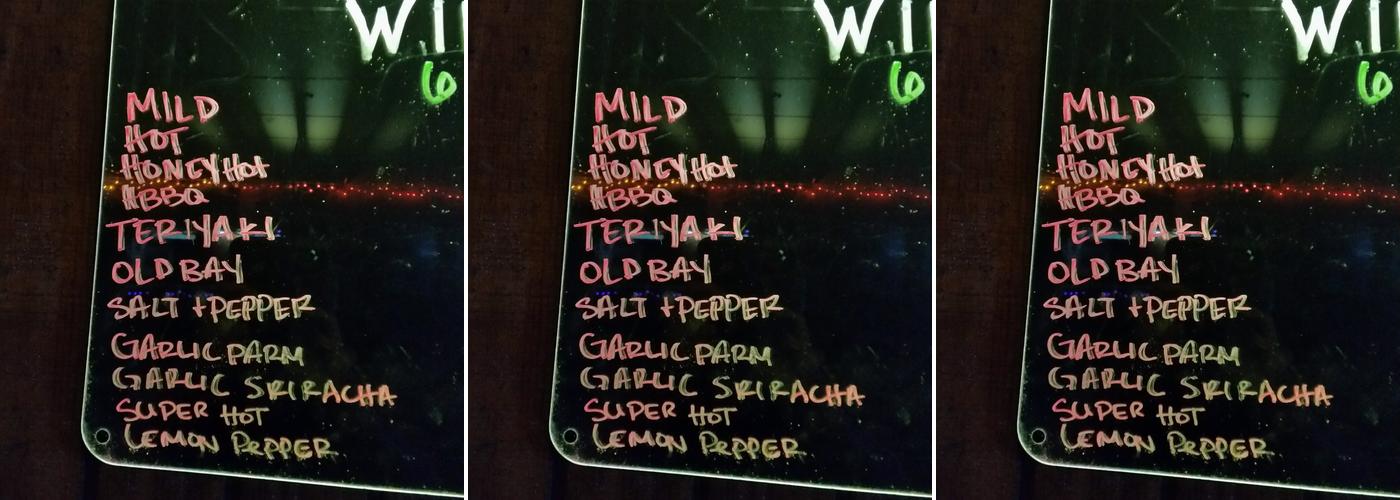 WI
6
MILD
HOT
HONEY HOT
BBQ
TERIYAKI
OLD BAY
SALT + PEPPER
GARLIC PARM
GARLIC SRIRACHA
SUPER HOT
LEMON PEPPER
WI
6
MILD
HOT
HONEY HOT
BBQ
TERIYAKI
OLD BAY
SALT + PEPPER
GARLIC PARM
GARLIC SRIRACHA
SUPER HOT
LEMON PEPPER
WI
6
MILD
HOT
HONEY HOT
BBQ
TERIYAKI
OLD BAY
SALT + PEPPER
GARLIC PARM
GARLIC SRIRACHA
SUPER HOT
LEMON PEPPER